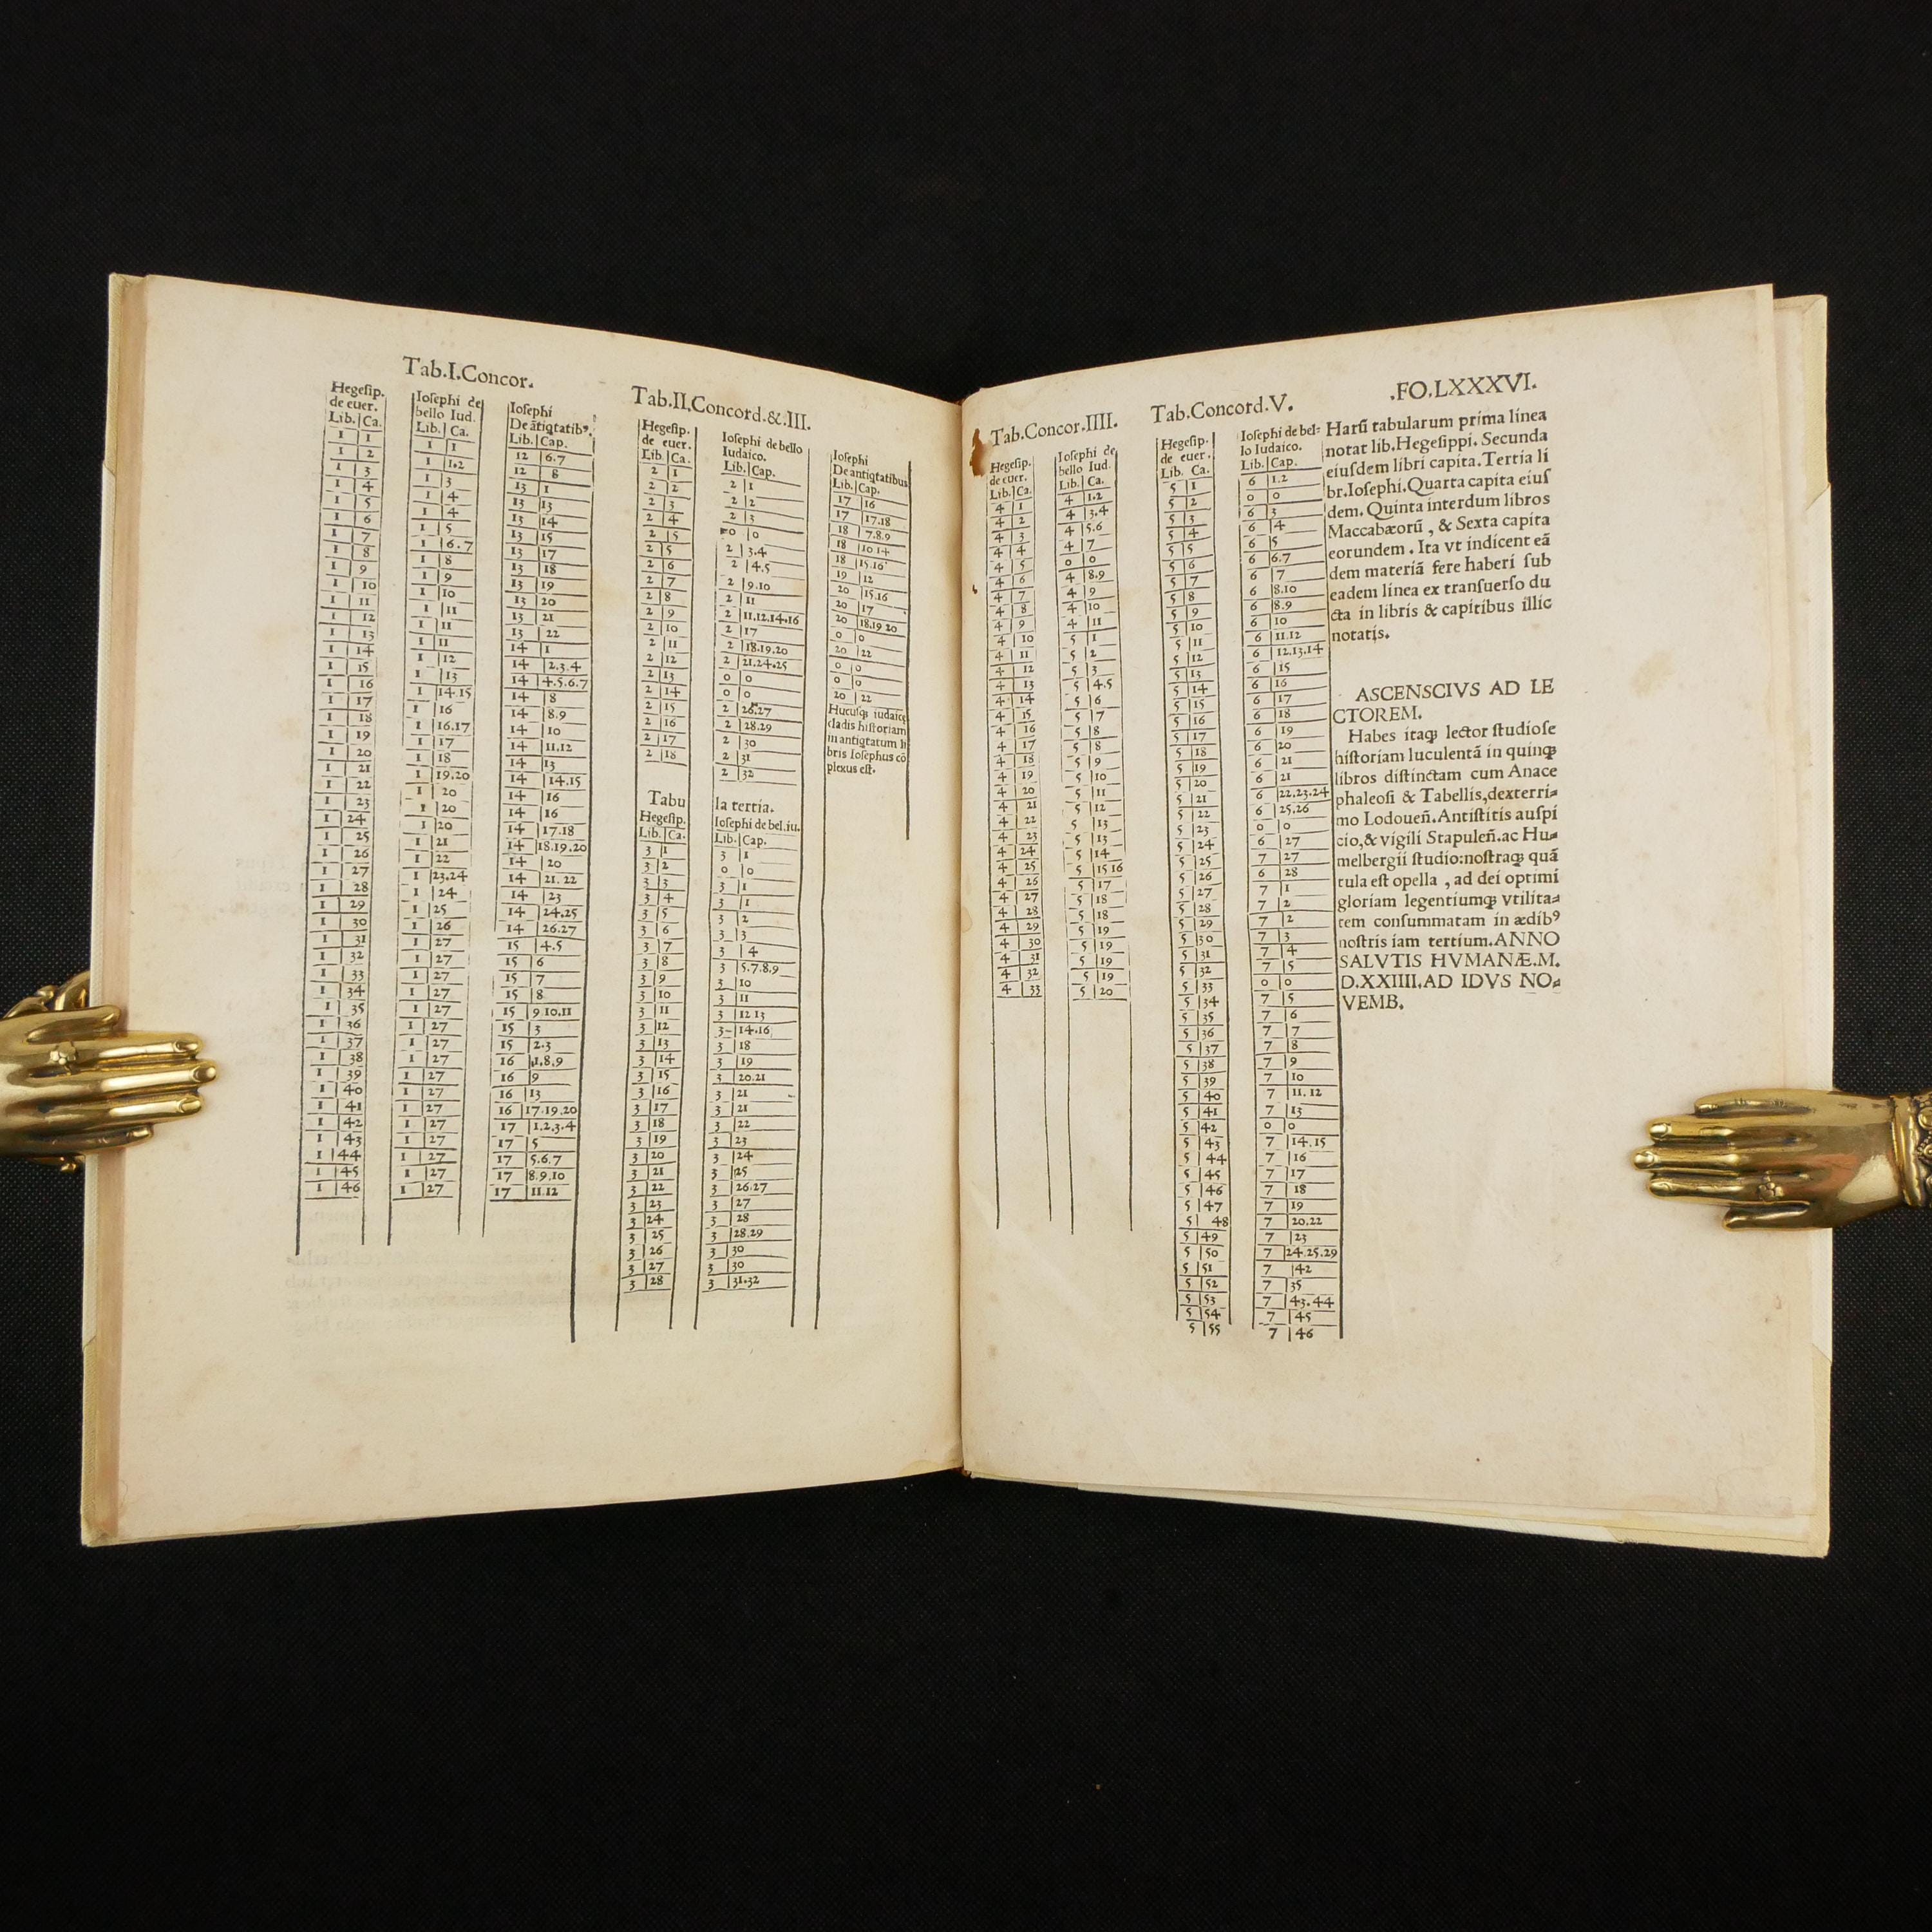 Tab.I.Concor.
Hegesip. de euer. | Iosephi de bello Iud. | Iosephi De ātiqtatib⁹.
Lib. Ca. | Lib. Ca. | Lib. Cap.
1 1 | 1 1 | 12 6.7
1 2 | 1 1.2 | 12 8
1 3 | 1 3 | 13 1
1 4 | 1 4 | 13 13
1 5 | 1 4 | 13 14
1 6 | 1 5 | 13 15
1 7 | 1 6.7 | 13 17
1 8 | 1 8 | 13 18
1 9 | 1 9 | 13 19
1 10 | 1 10 | 13 20
1 11 | 1 11 | 13 21
1 12 | 1 11 | 13 22
1 13 | 1 11 | 14 1
1 14 | 1 12 | 14 2.3.4
1 15 | 1 13 | 14 4.5.6.7
1 16 | 1 14.15 | 14 8
1 17 | 1 16 | 14 8.9
1 18 | 1 16.17 | 14 10
1 19 | 1 17 | 14 11.12
1 20 | 1 18 | 14 13
1 21 | 1 19.20 | 14 14.15
1 22 | 1 20 | 14 16
1 23 | 1 20 | 14 16
1 24 | 1 20 | 14 17.18
1 25 | 1 21 | 14 18.19.20
1 26 | 1 22 | 14 20
1 27 | 1 23.24 | 14 21.22
1 28 | 1 24 | 14 23
1 29 | 1 25 | 14 24.25
1 30 | 1 26 | 14 26.27
1 31 | 1 27 | 15 4.5
1 32 | 1 27 | 15 6
1 33 | 1 27 | 15 7
1 34 | 1 27 | 15 8
1 35 | 1 27 | 15 9.10.11
1 36 | 1 27 | 15 3
1 37 | 1 27 | 15 2.3
1 38 | 1 27 | 16 1.8.9
1 39 | 1 27 | 16 9
1 40 | 1 27 | 16 13
1 41 | 1 27 | 16 17.19.20
1 42 | 1 27 | 17 1.2.3.4
1 43 | 1 27 | 17 5
1 44 | 1 27 | 17 5.6.7
1 45 | 1 27 | 17 8.9.10
1 46 | 1 27 | 17 11.12
Tab.II.Concord.&.III.
Hegesip. de euer. | Iosephi de bello Iudaico. | Iosephi De antiqtatibus
Lib. Ca. | Lib. Cap. | Lib. Cap.
2 1 | 2 1 | 17 16
2 2 | 2 2 | 17 17.18
2 3 | 2 3 | 18 7.8.9
2 4 | 0 0 | 18 10 14
2 5 | 2 3.4 | 18 15.16
2 5 | 2 4.5 | 19 12
2 6 | 2 9.10 | 20 15.16
2 7 | 2 11 | 20 17
2 8 | 2 11.12.14.16 | 20 18.19 20
2 9 | 2 17 | 0 0
2 10 | 2 18.19.20 | 20 22
2 11 | 2 21.24.25 | 0 0
2 12 | 0 0 | 0 0
2 13 | 0 0 | 20 22
2 14 | 2 26.27
2 15 | 2 28.29
2 16 | 2 30
2 17 | 2 31
2 18 | 2 32
Hucusq; iudaicę
cladis historiam
in antiqtatum li
bris Iosephus cō
plexus est.
Tabula tertia.
Hegesip. | Iosephi de bel.iu.
Lib. Ca. | Lib. Cap.
3 1 | 3 1
3 2 | 0 0
3 3 | 3 1
3 4 | 3 1
3 5 | 3 2
3 6 | 3 3
3 7 | 3 4
3 8 | 3 5.7.8.9
3 9 | 3 10
3 10 | 3 11
3 11 | 3 12 13
3 12 | 3 14.16
3 13 | 3 18
3 14 | 3 19
3 15 | 3 20.21
3 16 | 3 21
3 17 | 3 21
3 18 | 3 22
3 19 | 3 23
3 20 | 3 24
3 21 | 3 25
3 22 | 3 26.27
3 23 | 3 27
3 24 | 3 28
3 25 | 3 28.29
3 26 | 3 30
3 27 | 3 30
3 28 | 3 31.32
.FO.LXXXVI.
Tab.Concor.IIII.
Hegesip. de euer. | Iosephi de bello Iud.
Lib. Ca. | Lib. Ca.
4 1 | 4 1.2
4 2 | 4 3.4
4 3 | 4 5.6
4 4 | 4 7
4 5 | 0 0
4 6 | 4 8.9
4 7 | 4 9
4 8 | 4 10
4 9 | 4 11
4 10 | 5 1
4 11 | 5 2
4 12 | 5 3
4 13 | 5 4.5
4 14 | 5 6
4 15 | 5 7
4 16 | 5 8
4 17 | 5 8
4 18 | 5 9
4 19 | 5 10
4 20 | 5 11
4 21 | 5 12
4 22 | 5 13
4 23 | 5 13
4 24 | 5 14
4 25 | 5 15 16
4 26 | 5 17
4 27 | 5 18
4 28 | 5 18
4 29 | 5 19
4 30 | 5 19
4 31 | 5 19
4 32 | 5 19
4 33 | 5 20
Tab.Concord.V.
Hegesip. de euer. | Iosephi de bello Iudaico.
Lib. Ca. | Lib. Cap.
5 1 | 6 1.2
5 2 | 0 0
5 3 | 6 3
5 4 | 6 4
5 5 | 6 5
5 6 | 6 6.7
5 7 | 6 7
5 8 | 6 8.10
5 9 | 6 8.9
5 10 | 6 10
5 11 | 6 11.12
5 12 | 6 12.13.14
5 13 | 6 15
5 14 | 6 16
5 15 | 6 17
5 16 | 6 18
5 17 | 6 19
5 18 | 6 20
5 19 | 6 21
5 20 | 6 21
5 21 | 6 22.23.24
5 22 | 6 25.26
5 23 | 0 0
5 24 | 6 27
5 25 | 7 27
5 26 | 6 28
5 27 | 7 1
5 28 | 7 2
5 29 | 7 2
5 30 | 7 3
5 31 | 7 4
5 32 | 7 5
5 33 | 0 0
5 34 | 7 5
5 35 | 7 6
5 36 | 7 7
5 37 | 7 8
5 38 | 7 9
5 39 | 7 10
5 40 | 7 11.12
5 41 | 7 13
5 42 | 0 0
5 43 | 7 14.15
5 44 | 7 16
5 45 | 7 17
5 46 | 7 18
5 47 | 7 19
5 48 | 7 20.22
5 49 | 7 23
5 50 | 7 24.25.29
5 51 | 7 42
5 52 | 7 35
5 53 | 7 43.44
5 54 | 7 45
5 55 | 7 46
Harū tabularum prima linea
notat lib.Hegesippi. Secunda
eiusdem libri capita. Tertia li
br.Iosephi. Quarta capita eius
dem. Quinta interdum libros
Maccabæorū, & Sexta capita
eorundem. Ita vt indicent eā
dem materiā fere haberi sub
eadem linea ex transuerso du
cta in libris & capitibus illic
notatis.
ASCENSCIVS AD LE
CTOREM.
Habes itaq; lector studiose
historiam luculentā in quinq;
libros distinctam cum Anace
phaleosi & Tabellis, dexterri-
mo Lodoueñ. Antistitis auspi
cio, & vigili Stapuleñ. ac Hu-
melbergii studio: nostraq; quā
tula est opella, ad dei optimi
gloriam legentiumq; vtilita-
tem consummatam in ædib⁹
nostris iam tertium. ANNO
SALVTIS HVMANÆ.M.
D.XXIIII.AD IDVS NO-
VEMB.